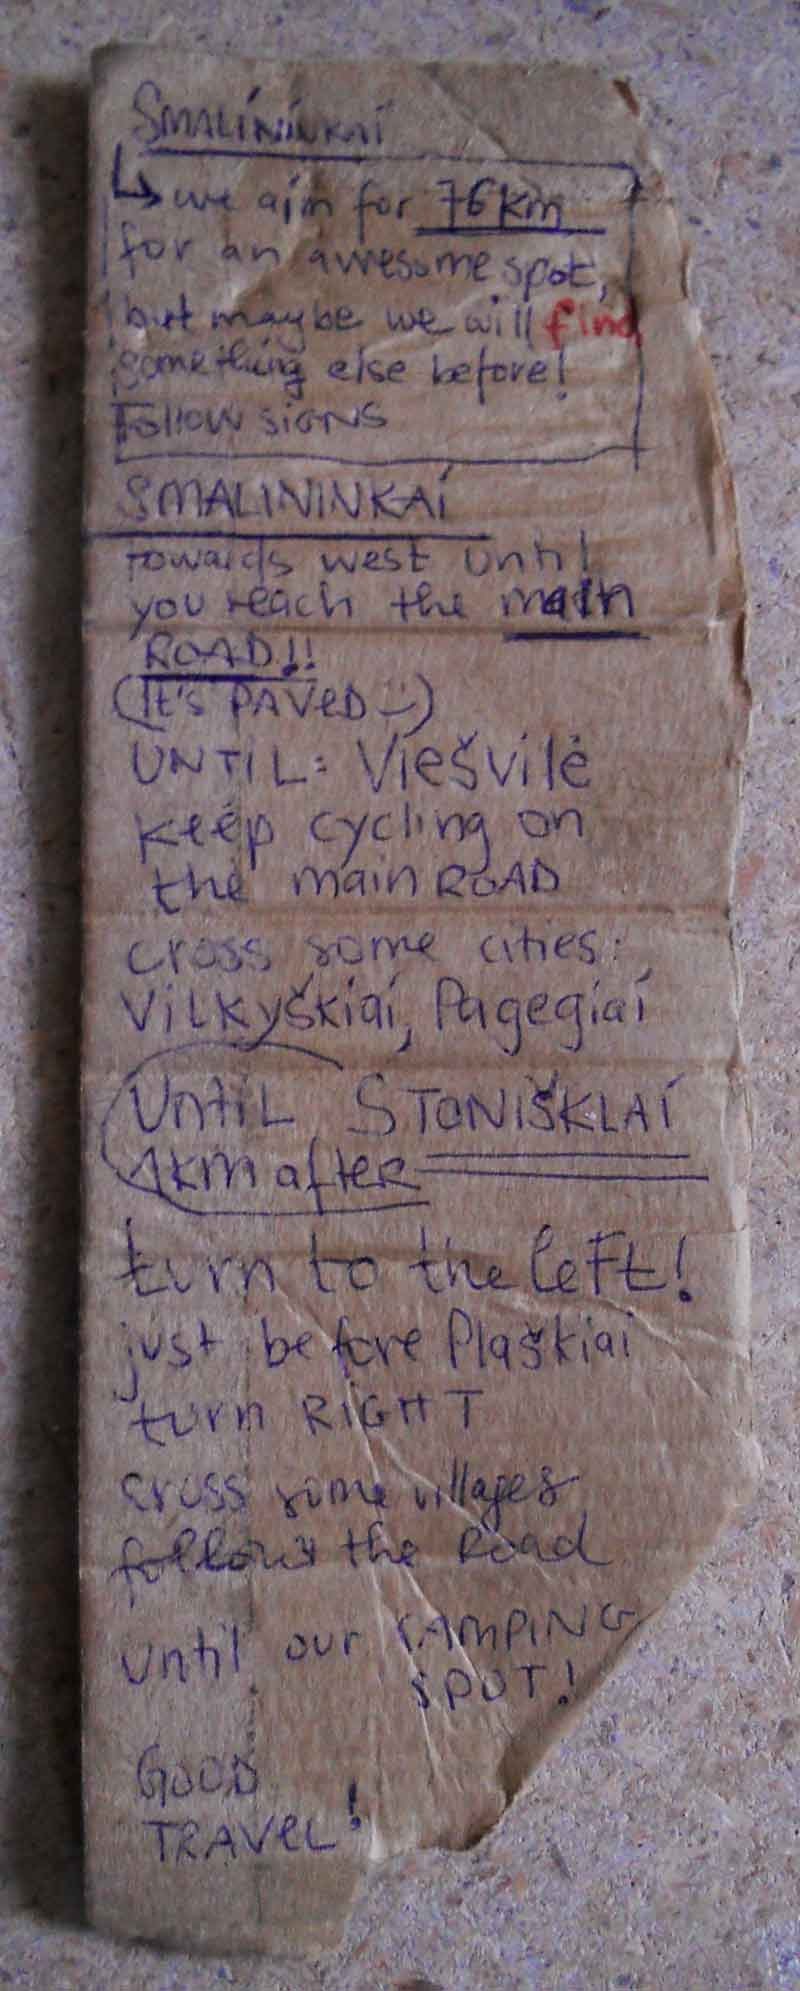 SMALININKAI
↳ we aim for 76 km
for an awesome spot,
but maybe we will find
something else before!
Follow signs
SMALININKAI
towards west until
you reach the main
ROAD!!
(It's PAVED :-)
UNTIL: Viešvilė
keep cycling on
the main ROAD
cross some cities:
Vilkyškiai, Pagegiai
Until STONIŠKLAI
1km after
turn to the left!
just before Plaškiai
turn RIGHT
cross some villages
follow the Road
until our CAMPING
SPOT!
GOOD
TRAVEL!